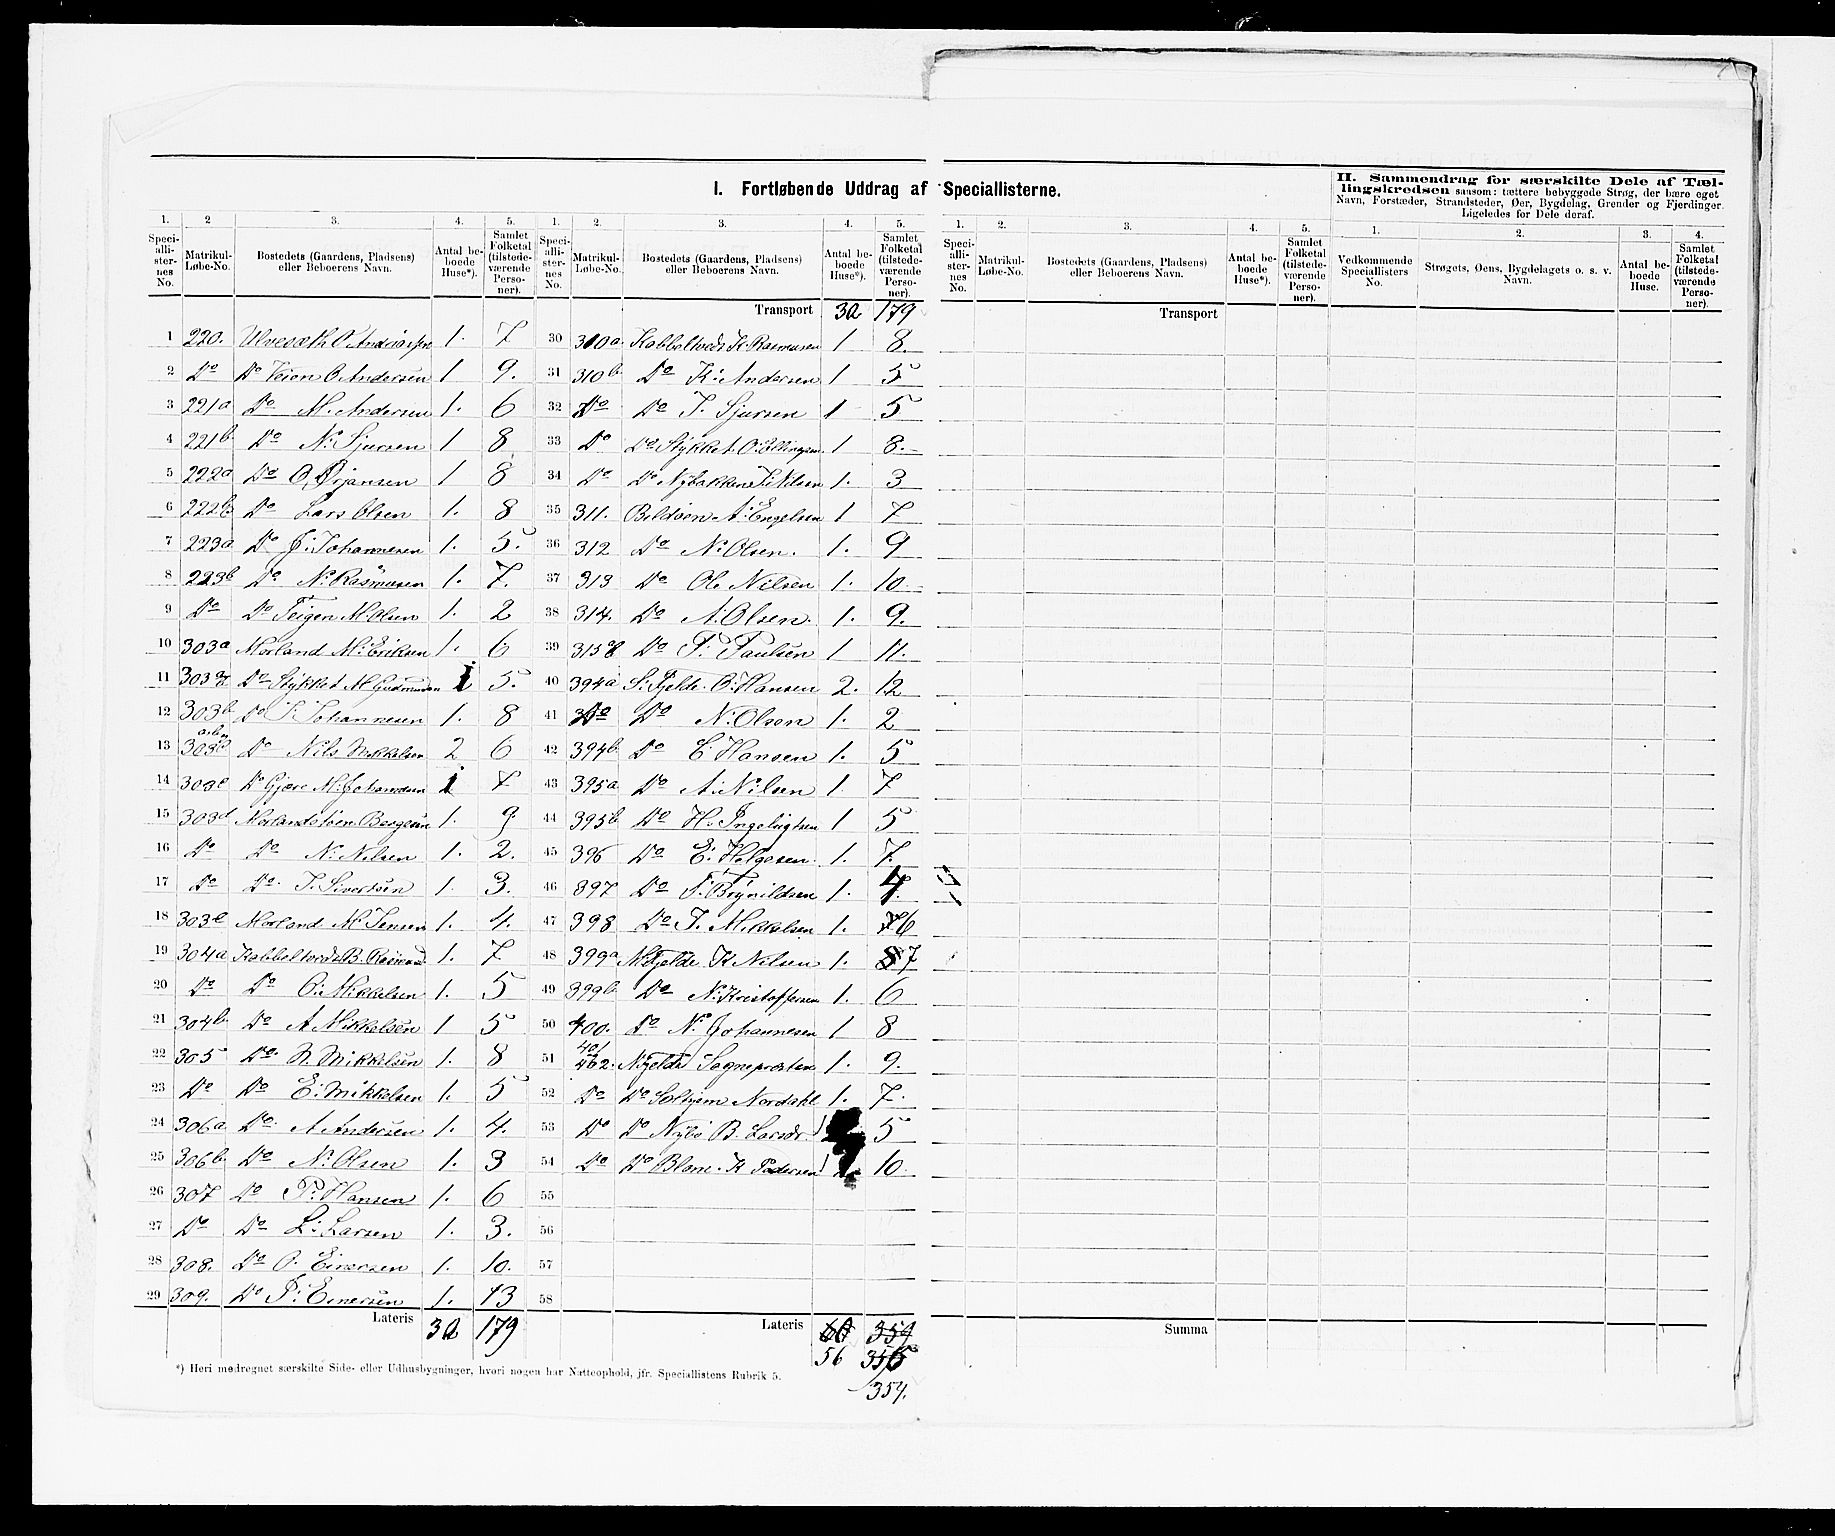 I. Fortløbende Uddrag af Speciallisterne.
II. Sammendrag for særskilte Dele af Tæl-
lingskredsen saasom: tættere bebyggede Strøg, der bære eget
Navn, Forstæder, Strandsteder, Øer, Bygdelag, Grender og Fjerdinger.
Ligeledes for Dele deraf.
1. 2 3. 4. 5. 1. 2. 3. 4. 5. 1. 2. 3. 4. 5. 1. 2. 3. 4.
Speci-alli-ster-nes No. Matrikul-Løbe-No. Bostedets (Gaardens, Pladsens) eller Beboerens Navn. Antal be-boede Huse*). Samlet Folketal (tilstede-værende Perso-ner).
Speci-alli-ster-nes No. Matrikul-Løbe-No. Bostedets (Gaardens, Pladsens) eller Beboerens Navn. Antal be-boede Huse*). Samlet Folketal (tilstede-værende Perso-ner).
Speci-alli-ster-nes No. Matrikul-Løbe-No. Bostedets (Gaardens, Pladsens) eller Beboerens Navn. Antal be-boede Huse*). Samlet Folketal (tilstede-værende Perso-ner).
Vedkommende Speciallisters No. Strøgets, Øens, Bygdelagets o. s. v. Navn. Antal be-boede Huse. Samlet Folketal (tilstede-værende Perso-ner).
1 220. Ulvesæth 1. 7
2 Do Do Veien O Andersen 1 9.
3 221a Do M. Andersen 1. 6
4 221b Do N. Sjursen 1 8
5 222a Do O. Ørjansen 1 8
6 222b Do Lars Olsen 1. 8
7 223a Do J: Johannesen 1. 5.
8 223b Do N. Rasmusen 1. 7.
9 Do Do Teigen M. Olsen 1. 2
10 303a Morland M: Eriksen 1. 6
11 303 Do Stykket M Gudmundsen 1 5.
12 303b Do J. Johannesen 1. 8
13 303 Do Nils Mikkelsen 2 6
14 303c Do Gjære M: Johannesen 1 7
15 303d Morlandstøen Børgesen 1. 9
16 Do Do N: Nilsen 1. 2.
17 Do Do. J. Sivertsen 1. 3.
18 303e Morland M: Jensen 1. 4.
19 304a Kobbeltvedt B. 1. 7
20 Do Do O: Mikkelsen 1. 5
21 304b. Do A Mikkelsen 1 5
22 305 Do. N. Mikkelsen 1. 8
23 Do Do E: Mikkelsen 1. 5
24 306a Do. A Andersen 1. 4.
25 306b. Do N. Olsen 1. 3
26 307 Do P. Hansen 1. 6
27 Do Do L: Larsen 1. 3.
28 308. Do O. Einersen 1. 10.
29 309. Do P: Einersen 1. 13
Lateris 32 179
Transport 32 179
30 310a. Kobbeltvedt K. Rasmusen 1 8.
31 310b. Do K: Andersen 1 5
32 Do Do J. Sjursen 1 5
33 Do Do Stykket O: Ellingsen 1 8.
34 Do Do Nybakken J. Nilsen 1. 3
35 311. Bildøen A: Engelsen 1 7
36 312 Do N: Olsen. 1. 9
37 313 Do Ole Nilsen 1. 10.
38 314. Do A. Olsen. 1. 9.
39 315 Do P: Paulsen 1 11.
40 394a S: Fjelde. O: Hansen 2. 12
41 Do Do N: Olsen 1. 2
42 394b. Do E: Hansen 1. 5
43 395a Do A: Nilsen 1. 7
44 395b. Do H. Ingebrigtsen 1 5
45 396 Do E: Helgesen. 1. 7.
46 397 Do Brynildsen 1. 4
47 398 Do J. Mikkelsen 1. 6
48 399a N Fjelde K Nilsen 1. 7
49 399b. Do N: Kristoffersen 1. 6
50 400. Do N. Johannesen 1 8
51 401/402. N Fjelde Sognepresten 1. 9.
52 Do Do Solhjem Nordahl 1. 7.
53 Do Do Nybø B. Larsdr 1 5
54 Do Do Blom. K Pedersen 1 10
55
56
57
58
Lateris 60 359
56 356
357.
Transport
Summa
*) Heri medregnet særskilte Side- eller Udhusbygninger, hvori nogen har Natteophold, jfr. Speciallistens Rubrik 5.